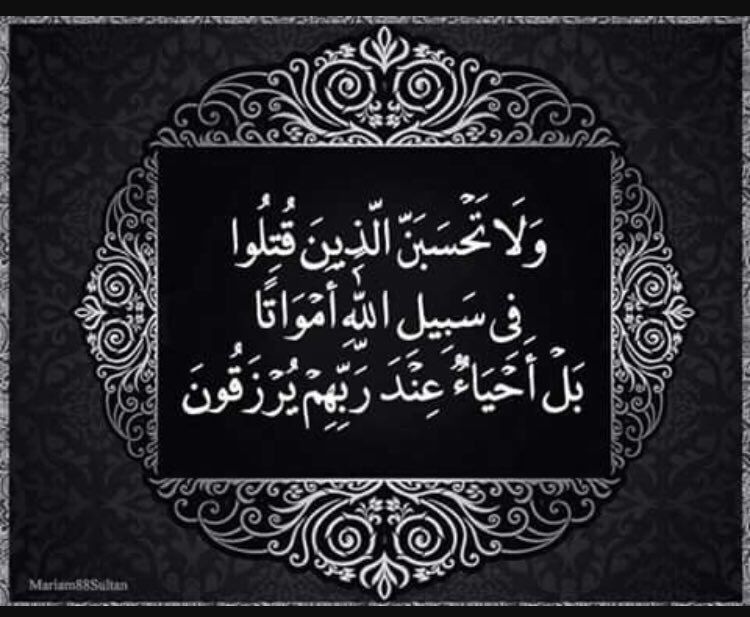 وَلَا تَحْسَبَنَّ الَّذِينَ قُتِلُوا
فِي سَبِيلِ اللَّهِ أَمْوَاتًا
بَلْ أَحْيَاءٌ عِنْدَ رَبِّهِمْ يُرْزَقُونَ
Mariam88Sultan